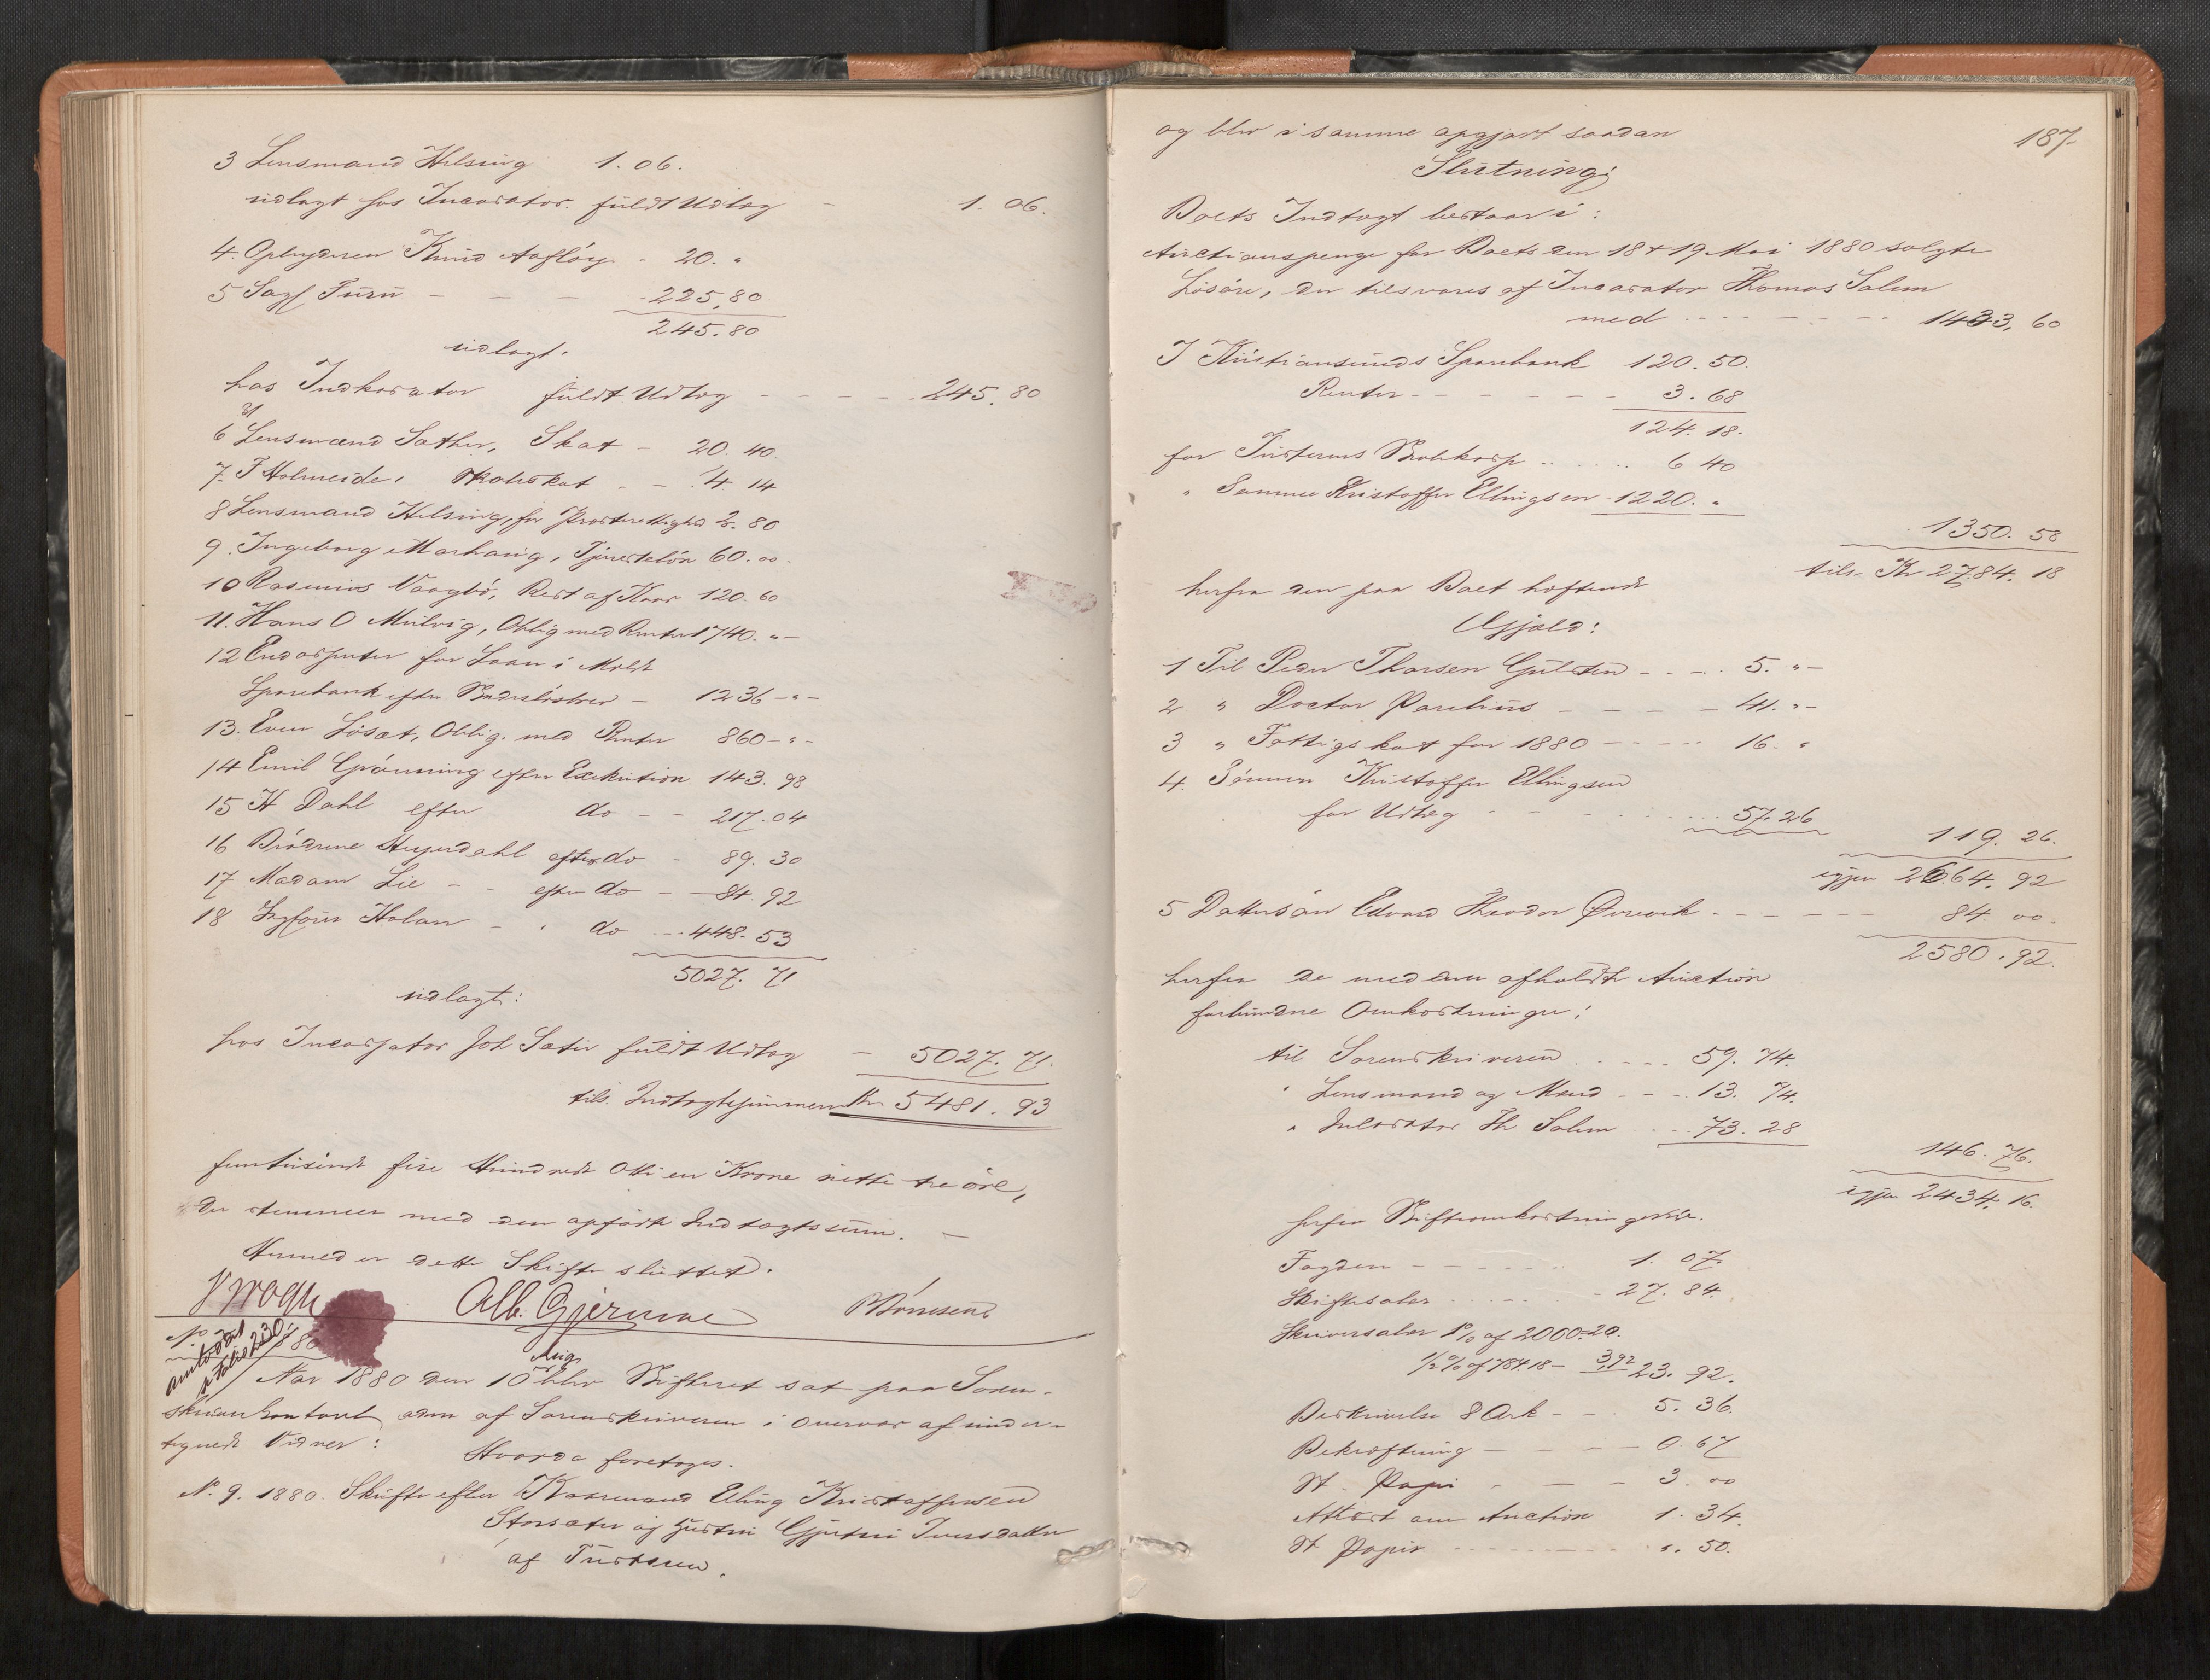 3 Lensmand Helsing 1. 06.
udlagt hos Incasator. fuldt Udlæg - 1. 06.
4. Opbyderen Knud Aafløy - 20. "
5 Sagf Furu - - - 225,80
245.80
udlagt.
hos Indkasator fuldt Udlæg - - - - 245. 80
6 Lensmand Sæther, Skat - 20. 40
7. J Holmeide, Skoleskat - - 4 14
8 Lensmand Helsing, for 2. 80
9. Ingeborg Marhaug, Tjenesteløn 60. 00.
10 Rasmus Vaagbø, Rest af Kaar 120. 60
11. Hans O Mülvig, Oblig med Renter 1740. "-
12 Endossenter for Laan i Molde
Sparebank efter - 1236 -"-
13. Even Løsæt, Oblig. med Renter 860 -"-
14 Emil Grønning efter Exekution 143. 98
15 H Dahl efter do - - 217. 04
16 Brødrene Heyerdahl efter do - 89. 30
17 Madam Lie - - efter do - - 84. 92
18 Sagfører Holan - " do - - - 448. 53
5027. 71
udlagt:
hos Incassator Joh Sæter fuldt Udlæg - 5027. 71.
tils. Indtægtssummen Kr 5481. 93
femtusinde fire Hundrede Otti en Krone nitti tre øre,
der stemmer med den opførte Indtægtssum. -
Hermed er dette Skifte sluttet.
Alb. Gjerme
Børresen
No
anmeldt
se Folio 230
Aar 1880 den 10 Aug blev Skifteret sat paa Soren-
skriverkontoret, adm af Sorenskriveren i Overvær af under-
tegnede Vidner:
Hvorda foretoges.
N. 9. 1880. Skifte efter Kaarmand Elling Kristoffersen
Storsæter og Hustru Gjertru Iversdatter
af Tustern.
187.
og blev i samme opgjort saadan
Slutning:
Boets Indtægt bestaar i:
Auctionspenge for Boets den 18 & 19 Mai 1880 solgte
Løsøre, der tilsvares af Incasator Thomas Salem
med - - - - - - - 1433, 60
I Kristiansunds Sparebank 120. 50.
Renter - - - - - - 3. 68
124. 18.
for Tusterens 6 40
" Sønnen Kristoffer Ellingsen 1220. "
1350. 58
tils. Kr 2784. 18
herfra den paa Boet heftende
Gjæld:
1 Til Peder Thorsen Gulsten - - - - 5. "-
2 " Doctor Parelius - - - - - 41. "-
3 " Fattigskat for 1880 - - - - 16. "
4. Sønnen Kristoffer Ellingsen
for Udlæg - - - - - - 57. 26
119. 26.
igjen 2664. 92
5 Dattersøn Edvard Theodor Ørrevik - - - - - 84. 00.
2580. 92.
herfra de med den afholdte Auction
forbundne Omkostninger:
til Sorenskriveren - - - - 59. 74.
" Lensmand og Mænd - - - 13. 74.
" Incasator Th Salem - - - 73. 28
146. 76.
igjen 2434. 16.
herfra Skifteomkostningerne.
Fogden - - - - - - 1. 07.
Skiftesalær - - - - - - 27. 84.
Skriversalær 1% af 2000 = 20.
1/2 % af 784.18 - 3,92 23. 92.
Beskrivelse 8 Ark - - - 5. 36.
Bekræftning - - - - - 0. 67
St. Papir - - - - 3. 00
Attest om Auction 1. 34.
St Papir - - - - - - - ". 50.